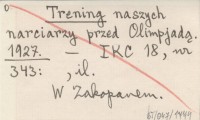 Trening naszych
narciarzy przed Olimpjadą.
1927. — IKC 18, nr
343: , il.
W Zakopanem.